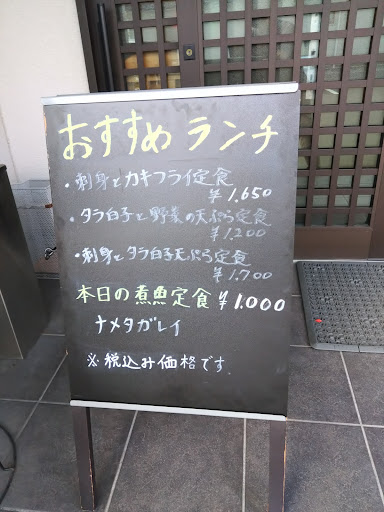 おすすめランチ
・刺身とカキフライ定食
¥1,650
・タラ白子と野菜の天ぷら定食
¥1,200
・刺身とタラ白子天ぷら定食
¥1,700
本日の煮魚定食¥1,000
ナメタガレイ
※税込み価格です.